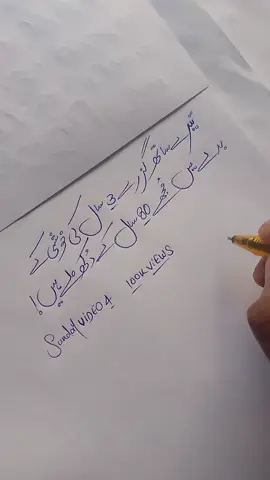 تیرے ساتھ گزرے 3 سال کی خوشی کے
بدلے میں مجھے 80 سال کے دُکھ ملے ہیں!
Sunday VIDEO 4 100K VIEWS